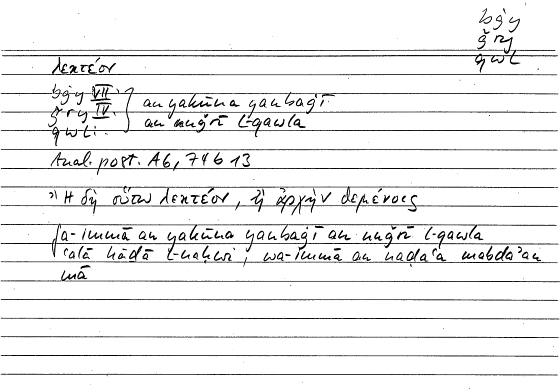 bġy
ǧry
qwl
λεκτέον
bġy VII.
ǧry IV. } an yakūna yanbaġī
qwl: an nuǧrī l-qawla
Anal. post. A6, 74b13
Ἢ δὴ οὕτω λεκτέον, ἢ ἀρχὴν θεμένοις
fa-immā an yakūna yanbaġī an nuǧrī l-qawla
ʿalā hāḏā l-naḥwi; wa-immā an naḍaʿa mabdaʾan
mā